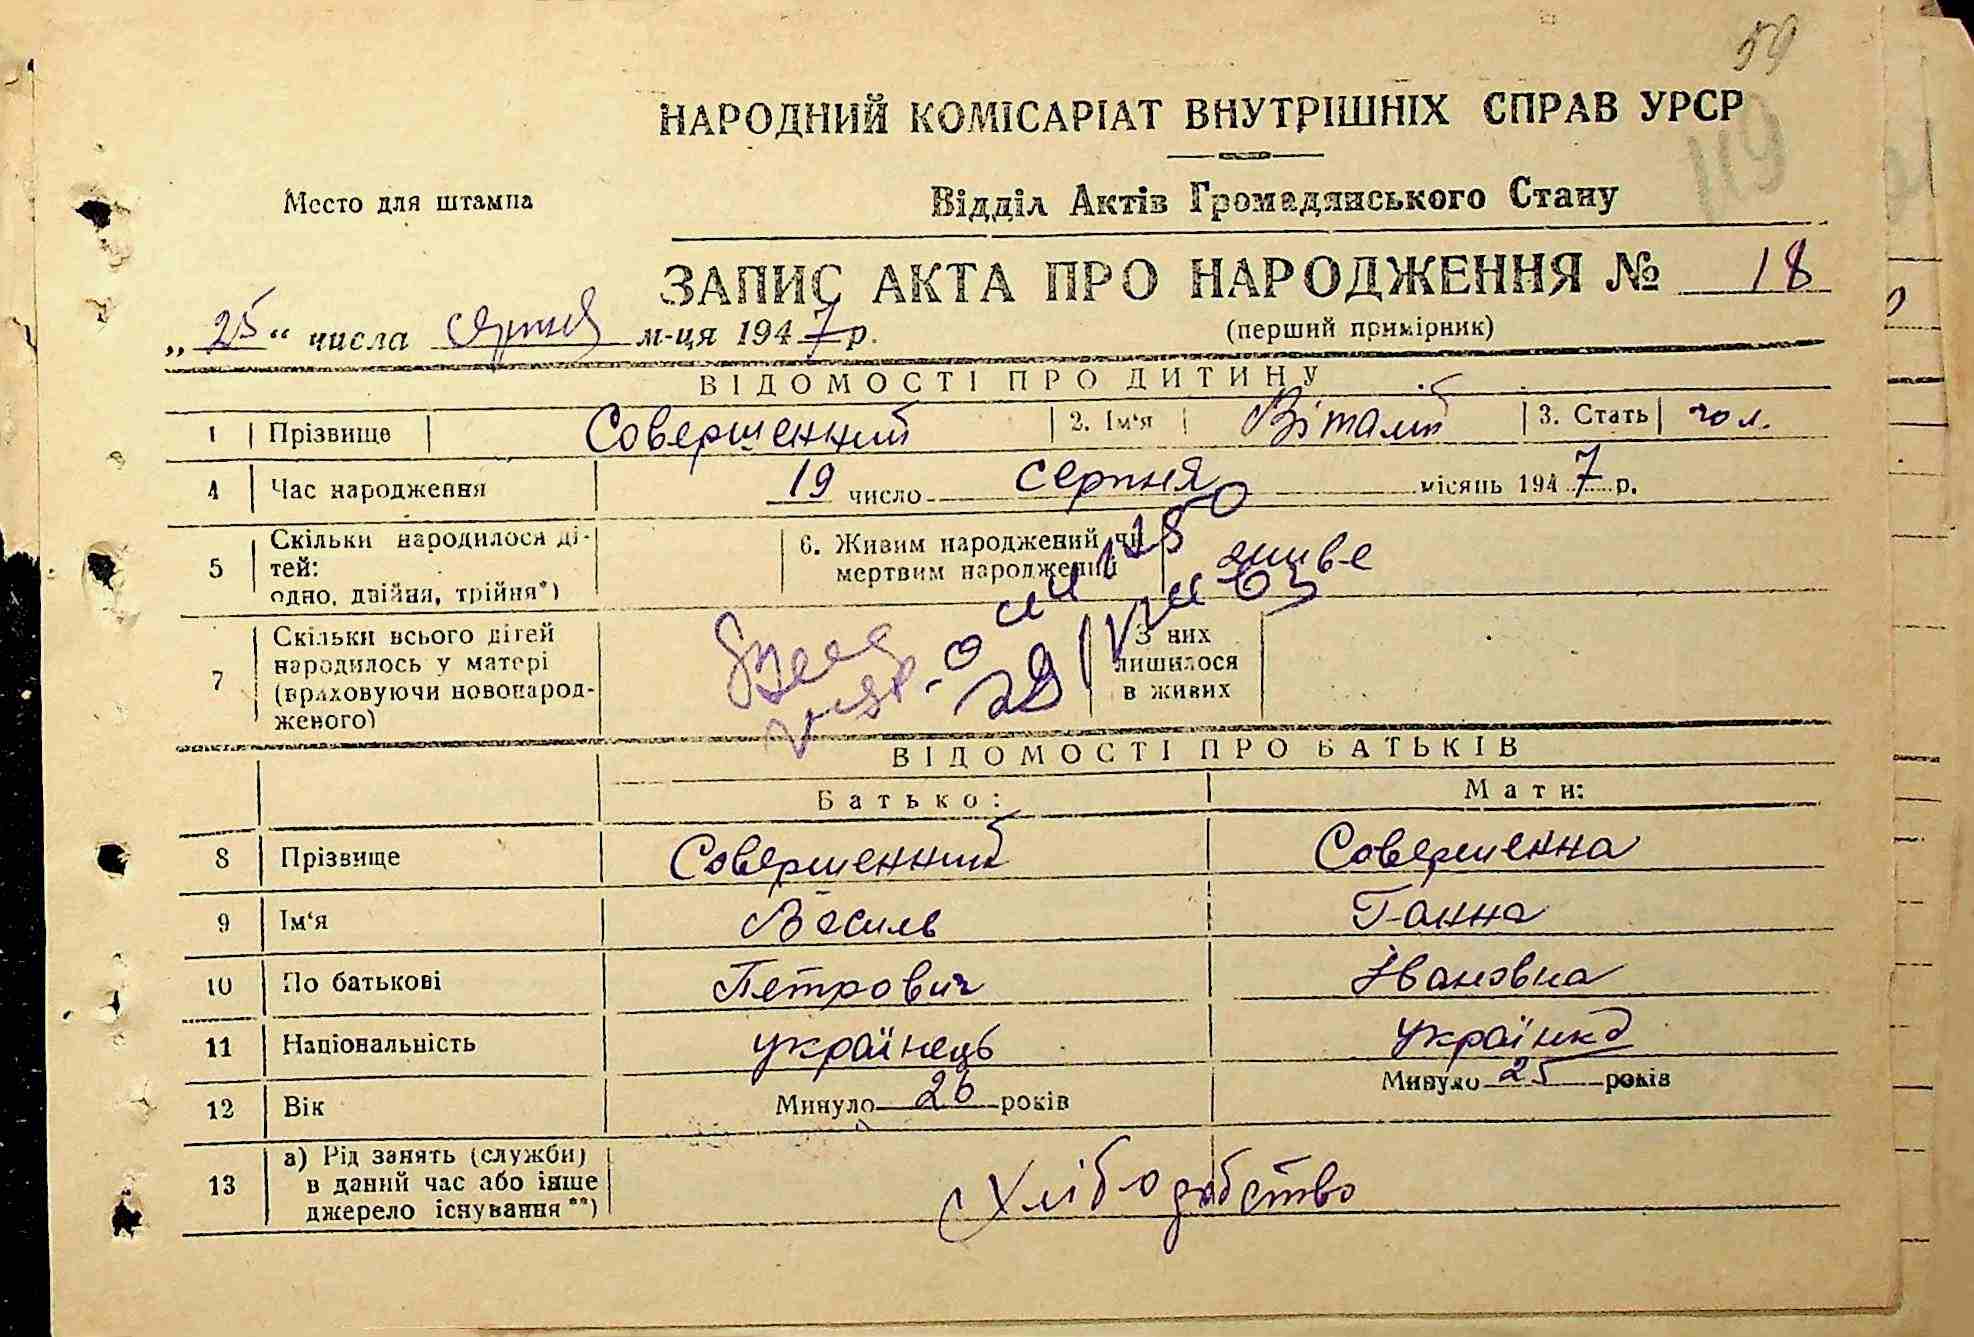 59
НАРОДНИЙ КОМІСАРІАТ ВНУТРІШНІХ СПРАВ УРСР
119
Место для штампа
Відділ Актів Громадянського Стану
ЗАПИС АКТА ПРО НАРОДЖЕННЯ № 18
„25“ числа серпня м-ця 1947 р.
(перший примірник)
ВІДОМОСТІ ПРО ДИТИНУ
1 Прізвище Совершенний 2. Ім'я Віталій 3. Стать чол.
4 Час народження 19 число серпня місяць 1947 р.
5 Скільки народилося ді-
тей:
одно, двійня, трійня*)
6. Живим народжений чи
мертвим народжений живе
7 Скільки всього дітей
народилось у матері
(враховуючи новонарод-
женого)
З них
лишилося
в живих
ВІДОМОСТІ ПРО БАТЬКІВ
Батько: Мати:
8 Прізвище Совершенний Совершенна
9 Ім'я Василь Ганна
10 По батькові Петрович Івановна
11 Національність українець українка
12 Вік Минуло 26 років Минуло 25 років
13 а) Рід занять (служби)
в даний час або інше
джерело існування**)
Хлібодобство